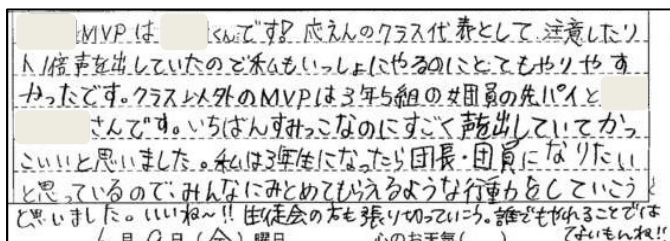 MVPは くんです! 応えんのクラス代表として注意したり
人1倍声を出していたので私もいっしょにやるのにとてもやりやす
かったです。クラス以外のMVPは3年5組の女団員の先パイと
さんです。いちばんすみっこなのにすごく声を出していてかっ
こいいと思いました。私は3年生になったら団長・団員になりたい
と思っているので、みんなにみとめてもらえるような行動をしていこうと
と思いました。いいね〜!! 生徒会の方も張り切っていこう。誰でもやれることでは
ないもんね!!
月9日(金)曜日 心のお天気( )